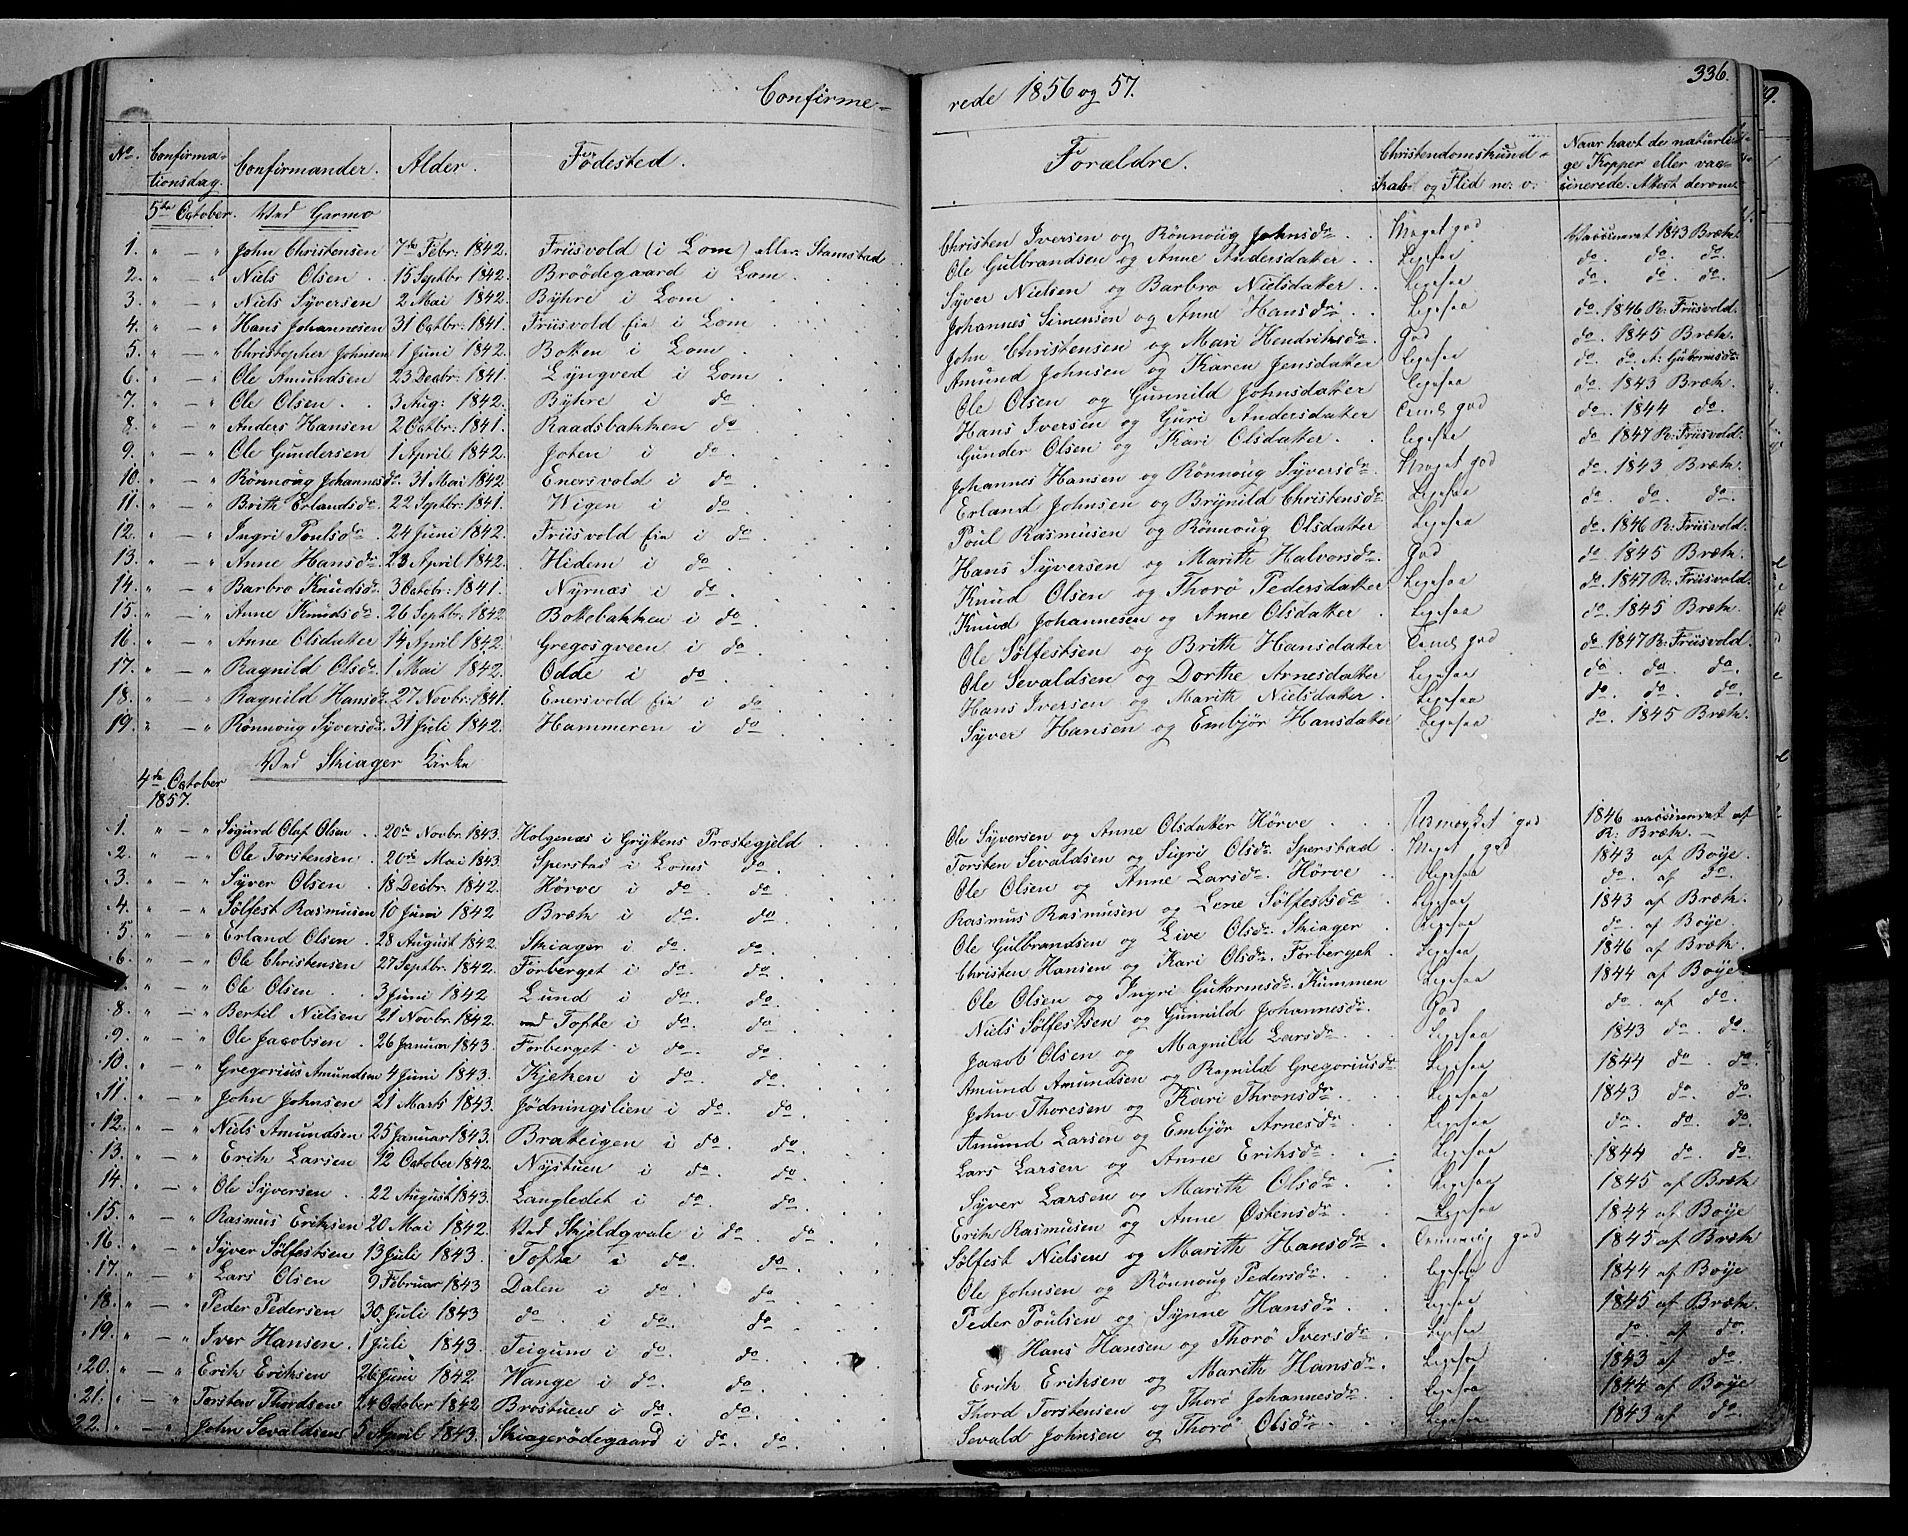 Confirme- rede 1856 og 57. 336.
No. Confirmationsdag. Confirmander. Alder. Fødested. Forældre. Christendomskundskab og Flid m: v: Naar havt de naturlige Kopper eller vaccinerede. Attest derom
5te October. Ved Garmo
1. " — " John Christensen 7de Febr: 1842. Friisvold (i Lom) eller Stamstad Christen Iversen og Rönnoug Johnsdr. Meget god Vaccineret 1843 Bræk.
2. " — " Niels Olsen 15 Septbr 1842. Broödegaard i Lom Ole Gulbrandsen og Anne Andersdatter Ligesaa do. do. do.
3. " — " Niels Syversen 2 Mai 1842. Byhre i Lom Syver Nielsen og Barbro Nielsdatter Ligesaa do. do. do.
4. " — " Hans Johannesen 31 Octbr: 1841. Friisvold eie i Lom Johannes Simensen og Anne Hansdr. Ligesaa do. 1846 R: Friisvold.
5. " — " Christopher Johnsen 1 Juni 1842. Boken i Lom John Christensen og Mari Hendriksdr. God do. 1845 Bræk.
6. " — " Ole Amundsen 23 Decbr: 1841. Lyngved i Lom Amund Johnsen og Karen Jensdatter Ligesaa do. do. A: Guttormsdr
7. " — " Ole Olsen 3 Aug: 1842. Byhre i do Ole Olsen og Gunnild Johnsdatter ligesaa do. 1843 Bræk.
8. " — " Anders Hansen 2 Octbr: 1841. Raadsbakken do Hans Iversen og Guri Andersdatter Temel. god do. 1844 do.
9. " — " Ole Gundersen 1 April 1842. Joten i do. Gunder Olsen og Kari Olsdatter ligesaa do. 1847 R: Friisvold.
10. " — " Rönnoug Johannesdr. 31 Mai 1842 Enersvold i do Johannes Hansen og Rönnoug Syversdr Meget god do. 1843 Bræk.
11. " — " Brith Erlandsdr. 22 Septbr. 1841. Wigen i do. Erland Johnsen og Brynild Christensdr Ligesaa do. do. do.
12. " — " Ingri Poulsdr. 24 Juni 1842. Friisvold eie i do. Poul Rasmusen og Rönnoug Olsdatter Ligesaa do. 1846 R: Friisvold.
13. " — " Anne Hansdr. 23 April 1842. Hidem i do Hans Syversen og Marith Halvorsdr. God do. 1845 Bræk.
14. " — " Barbro Knudsdr. 3 Octobr. 1841. Nyrnæs i do. Knud Olsen og Thorö Pedersdatter Ligesaa do. 1847 R: Friisvold
15. " — " Anne Knudsdr. 26 Septbr. 1842 Bokebakken i do. Knud Johannesen og Anne Olsdatter Ligesaa do. 1845 Bræk.
16. " — " Anne Olsdatter 14 April 1842. Gregosgveen i do. Ole Sölfestsen og Brith Hansdatter Temel. god do. 1847 R: Friisvold.
17. " — " Ragnild Olsdr. 1 Mai 1842. Odde i do. Ole Sevaldsen og Dorthe Arnesdatter Ligesaa do. do. do.
18. " — " Ragnild Hansdr. 27 Novbr. 1841. Enersvold eie i do. Hans Iversen og Marith Nielsdatter Ligesaa do. do. do.
19. " — " Rönnoug Syversdr. 31 Juli 1842. Hammeren i do Syver Hansen og Embjör Hansdatter Ligesaa do. 1845 Bræk.
Ved Skiager Kirke
4de October 1857.
1. " — " Sigurd Olaf Olsen 20de Novbr. 1843. Holgenæs i Gryttens Præstegjeld Ole Syversen og Anne Olsdatter Hörve Udmærket god 1846 vaccineret af R: Bræk.
2. " — " Ole Torstensen 20de Mai 1843. Sperstad i Loms do. Torsten Sevaldsen og Sigri Olsdr. Sperstad Meget god 1843 af Boye.
3. " — " Syver Olsen 18 Decbr. 1842. Hörve i do. do. Ole Olsen og Anne Larsdr. Hörve Ligesaa do. af do.
4. " — " Sölfest Rasmusen 10 Juni 1842 Bræk i do. do. Rasmus Rasmusen og Lene Sölfestsdr Ligesaa 1843 af Bræk.
5. " — " Erland Olsen 28 August 1842. Skiager i do. do. Ole Gulbrandsen og Live Olsdr. Skiager Ligesaa do. af Boye.
6. " — " Ole Christensen 27 Septbr. 1842. Forberget i do. do. Christen Hansen og Kari Olsdr. Forberget Ligesaa 1846 af Bræk.
" — " Ole Olsen 3 Juni 1842 Lund i do. do. Ole Olsen og Ingri Guttormsdr. Kummen Ligesaa 1844 af Boye
8. " — " Bertil Nielsen 21 Novbr. 1842. ved Tofte i do. do. Niels Sölfestsen og Gunnild Johannesdr. God do. af do.
9. " — " Ole Jacobsen 26 Januar 1843. Forberget i do. do. Jacob Olsen og Magnild Larsdr. Ligesaa 1843 do. do.
10. " — " Gregorius Amundsen 4 Juni 1843. Kjeken i do. do. Amund Amundsen og Ragnild Gregoriusdr Ligesaa 1844 do. do.
11. " — " John Johnsen 21 Marts 1843. Jödningslien i do. do. John Thoresen og Kari Thronsdr. Ligesaa 1843 do. do.
12. " — " Niels Amundsen 25 Januar 1843. Brateigen i do. do. Amund Larsen og Embjör Arnesdr. Ligesaa do. do. do.
13. " — " Erik Larsen 12 October 1842. Nystuen i do. do. Lars Larsen og Anne Eriksdr. Ligesaa 1844 do. do.
14. " — " Ole Syversen 22 August 1843. Langledet i do. do. Syver Larsen og Marith Olsdr. Ligesaa 1845 af Bræk
15. " — " Rasmus Eriksen 20 Mai 1842. Ved Skjeldqvale i do. do. Erik Rasmusen og Anne Östensdr. Ligesaa 1844 af Boye
16. " — " Syver Sölfestsen 13 Juli 1843. Tofte i do. do. Sölfest Nielsen og Marith Hansdr. Temmelig god 1845 af Bræk
17. " — " Lars Olsen 9 Februar 1843 Dalen i do. do. Ole Johnsen og Rönnoug Pedersdr. ligesaa 1844 af Boye
18. " — " Peder Pedersen 30 Juli 1843 do. i do. do. Peder Poulsen og Synne Hansdr Ligesaa 1845 af Bræk.
19. " — " Iver Hansen 1 Juli 1843. Teigum i do. do. Hans Hansen og Thorö Iversdr. Ligesaa do. af do.
20. " — " Erik Eriksen 26 Juni 1842. Hange i do. do. Erik Eriksen og Marith Hansdr. Ligesaa 1843 af do.
21. " — " Torsten Thordsen 24 October 1842 Brostuen i do. do. Thord Torstensen og Thorö Johannesdr Ligesaa 1844 af Boye
22. " — " John Sevaldsen 5 April 1843. Skiagerödegaard i do. do. Sevald Johnsen og Thorö Olsdr. Ligesaa 1843 af do.